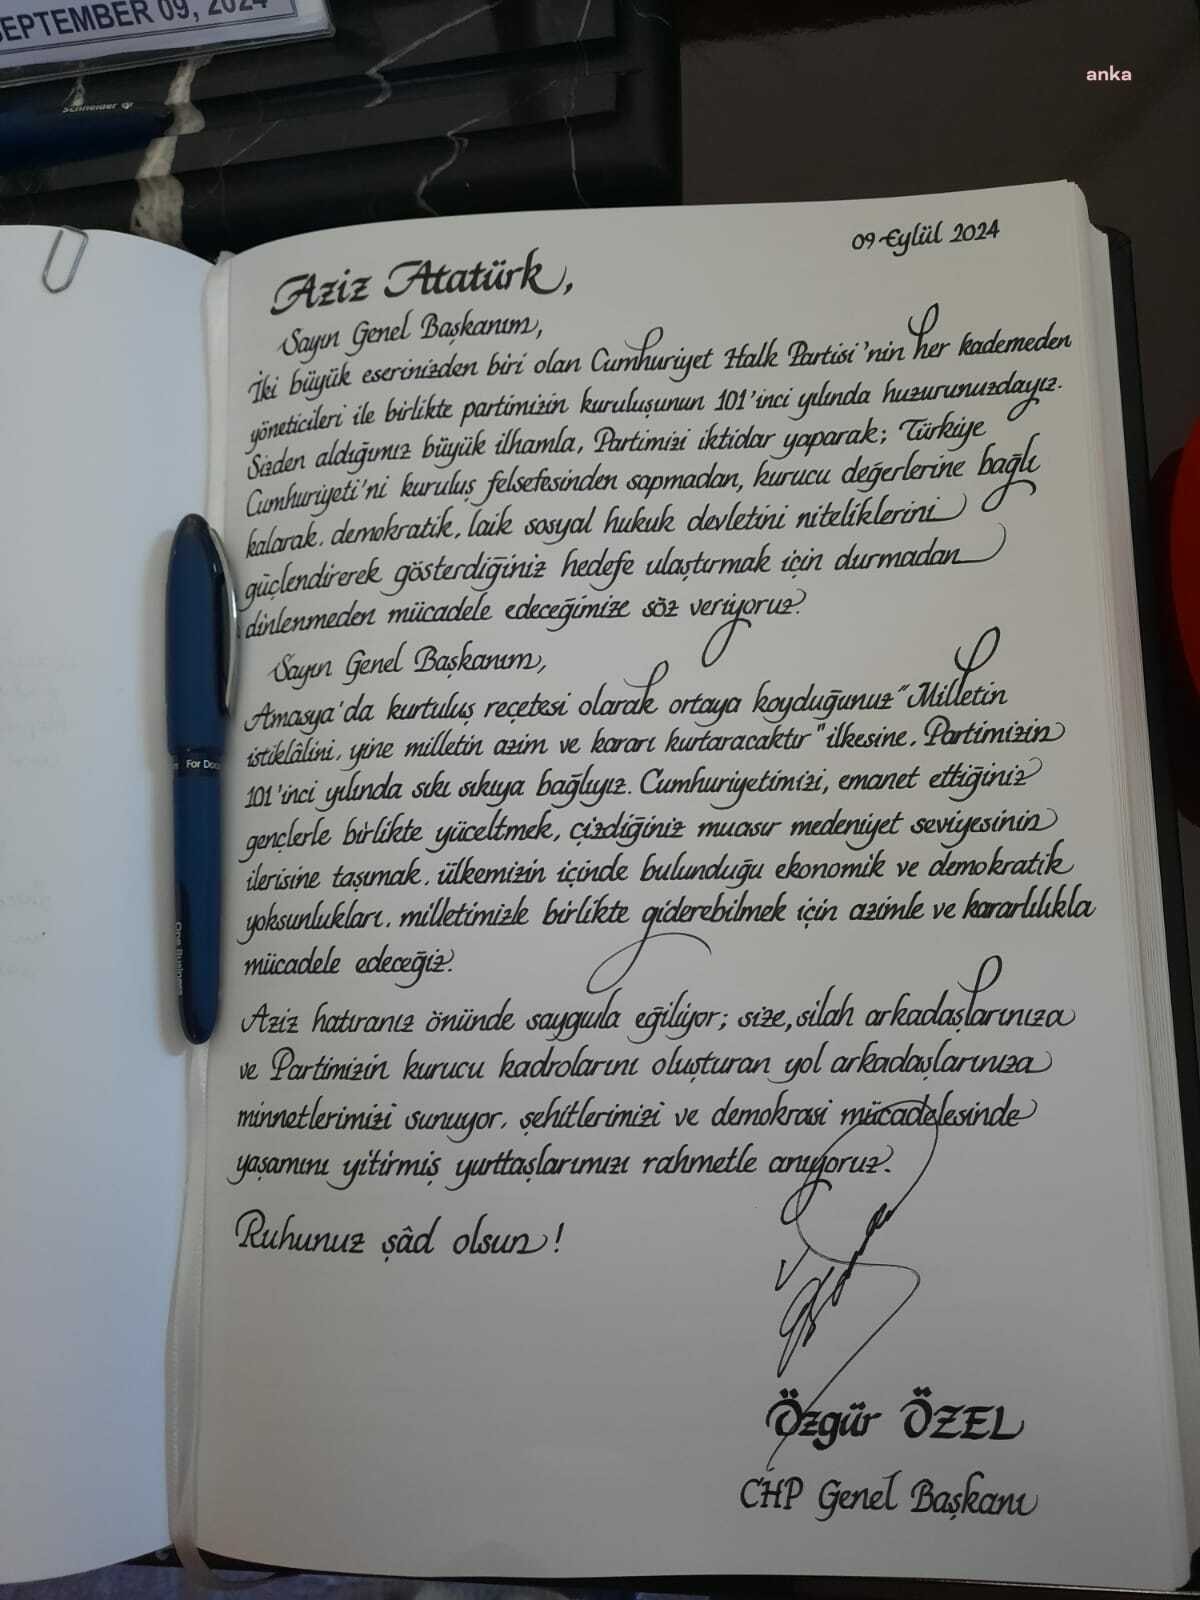 SEPTEMBER 09, 2024
anka
Schneider
09 Eylül 2024
Aziz Atatürk,
Sayın Genel Başkanım,
İki büyük eserinizden biri olan Cumhuriyet Halk Partisi'nin her kademeden
yöneticileri ile birlikte partimizin kuruluşunun 101'inci yılında huzurunuzdayız.
Sizden aldığımız büyük ilhamla, Partimizi iktidar yaparak; Türkiye
Cumhuriyeti'ni kuruluş felsefesinden sapmadan, kurucu değerlerine bağlı
kalarak, demokratik, laik sosyal hukuk devletini niteliklerini
güçlendirerek gösterdiğiniz hedefe ulaştırmak için durmadan
dinlenmeden mücadele edeceğimize söz veriyoruz.
Sayın Genel Başkanım,
Amasya'da kurtuluş reçetesi olarak ortaya koyduğunuz "Milletin
istiklâlini, yine milletin azim ve kararı kurtaracaktır" ilkesine, Partimizin
101'inci yılında sıkı sıkıya bağlıyız. Cumhuriyetimizi, emanet ettiğiniz
gençlerle birlikte yüceltmek, çizdiğiniz muasır medeniyet seviyesinin
ilerisine taşımak, ülkemizin içinde bulunduğu ekonomik ve demokratik
yoksunlukları, milletimizle birlikte giderebilmek için azimle ve kararlılıkla
mücadele edeceğiz.
For Doc
One Business
Aziz hatıranız önünde saygıyla eğiliyor; size, silah arkadaşlarınıza
ve Partimizin kurucu kadrolarını oluşturan yol arkadaşlarınıza
minnetlerimizi sunuyor, şehitlerimizi ve demokrasi mücadelesinde
yaşamını yitirmiş yurttaşlarımızı rahmetle anıyoruz.
Ruhunuz şâd olsun!
Özgür ÖZEL
CHP Genel Başkanı